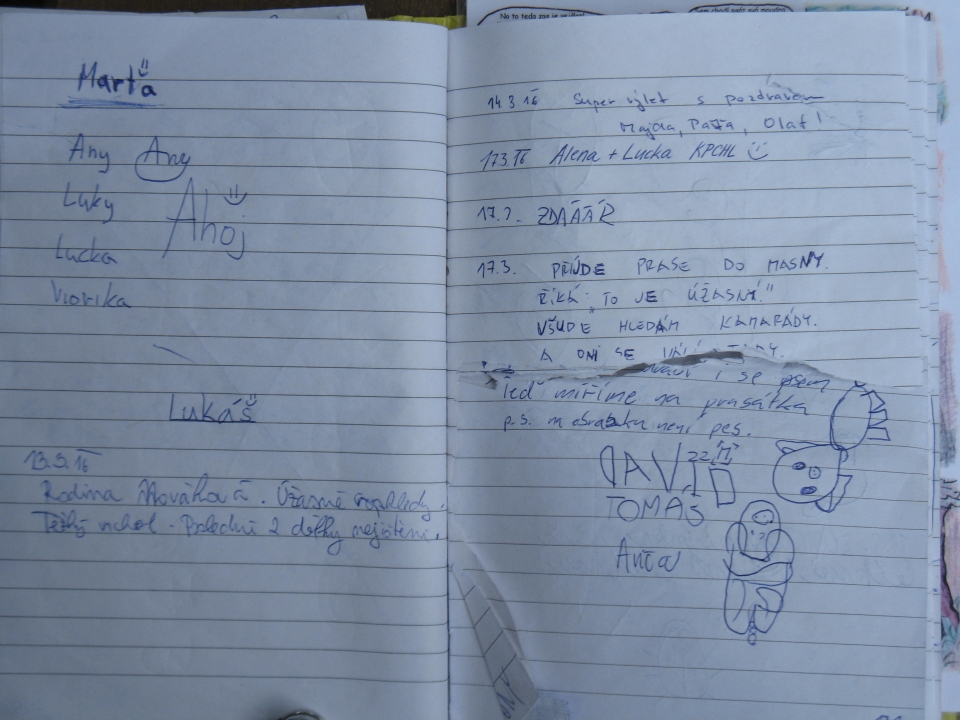 No to teda
Marťa
Any Any
Luky
Ahoj
Lucka
Viorika
Lukáš
13.3.16
Rodina Nováková. Úžasné rozhledy.
Těžký vrchol. Poslední 2 délky nejištěni.
14.3.16 Super výlet s pozdravem
Majda, Olaf!
17.3.16 Alena + Lucka KPCHL
17.3. ZDÁÁÁR
17.3. PŘIJDE PRASE DO MASNY.
ŘÍKÁ: TO JE ÚŽASNÝ."
VŠUDE HLEDÁM KAMARÁDY.
A ONI SE
i se psem
Teď míříme na prasátka
p.s. na obrázku není pes.
DAVID
TOMÁŠ
Anča